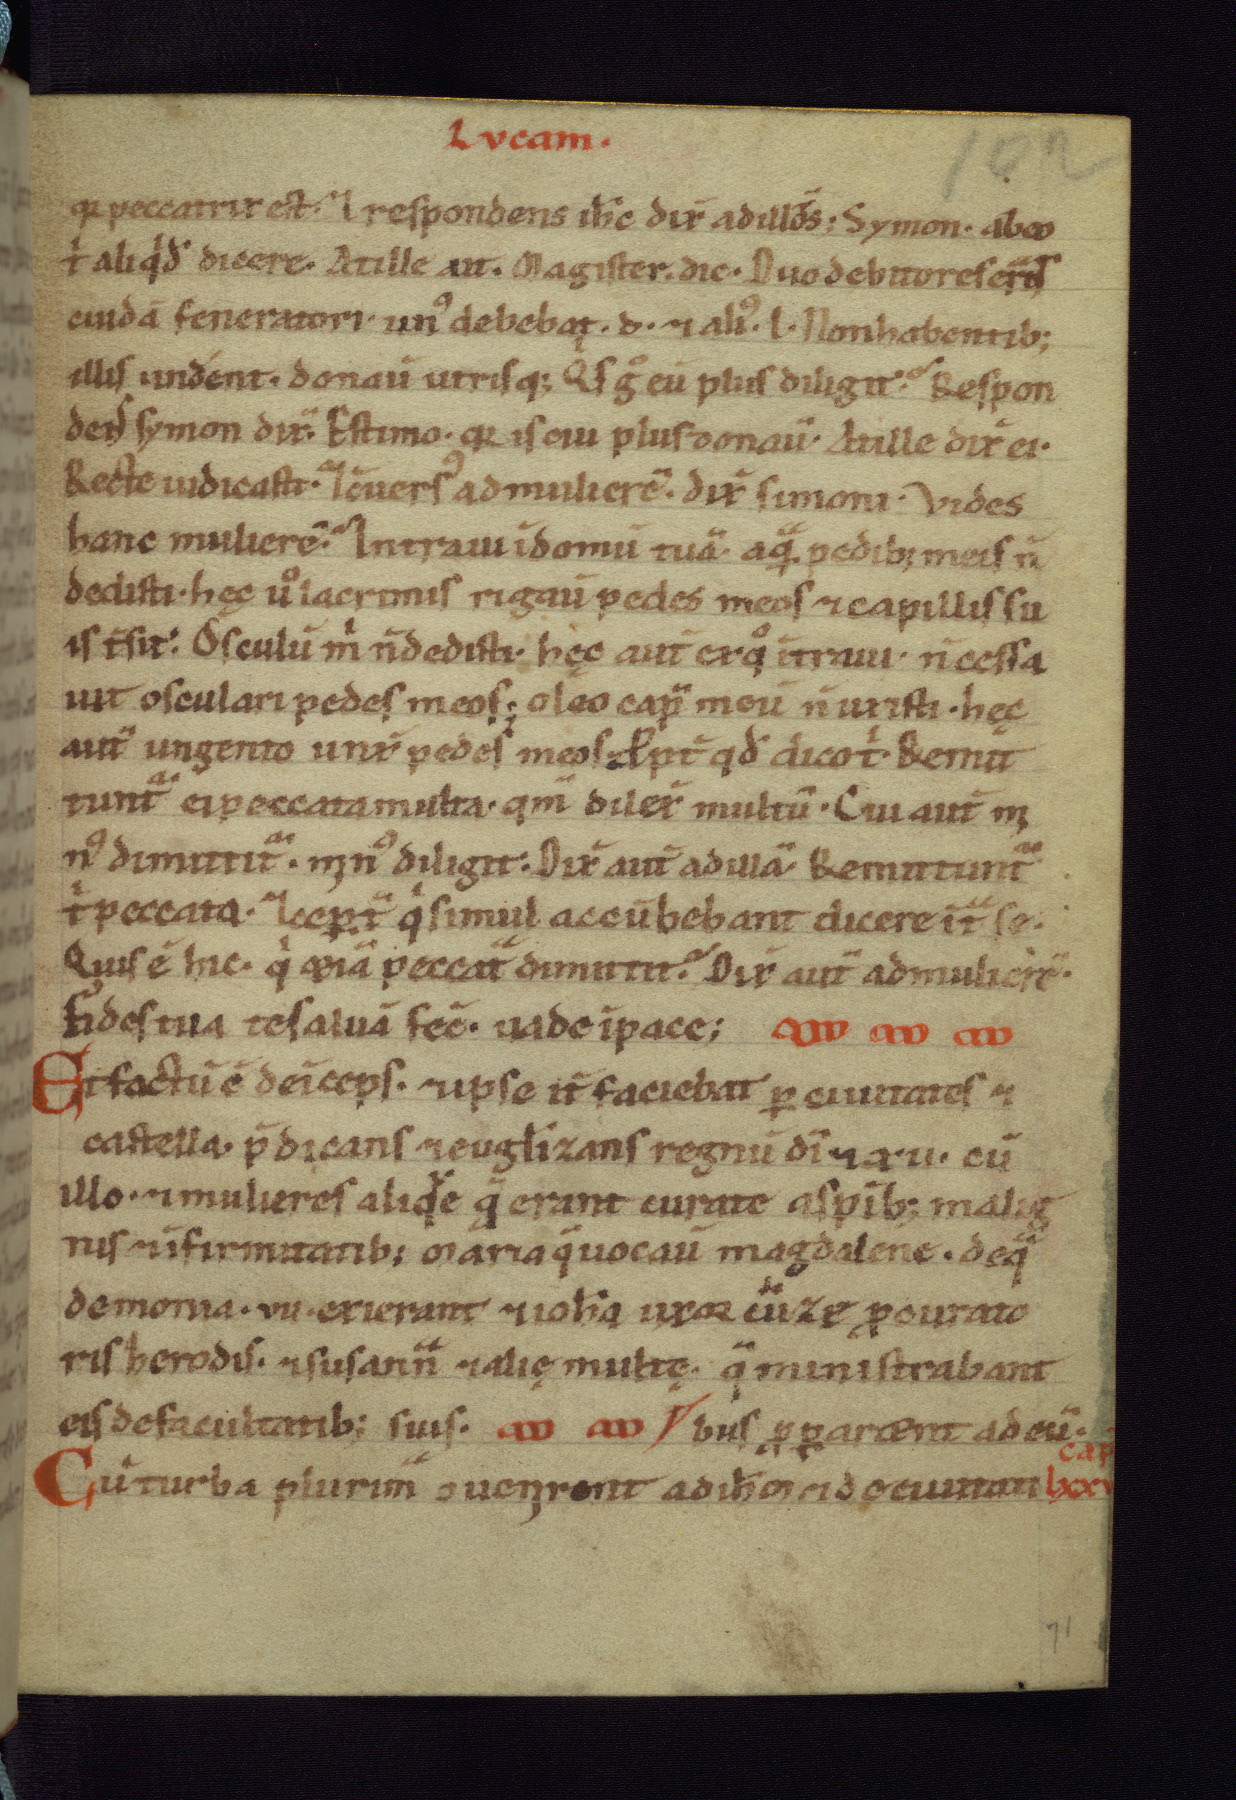 Lvcam.
102
qꝛ peccatrix est. ⁊ respondens ih̅c dix̅ ad illos̅; Symon. abeo
t' aliq̇d̅ dicere. At ille ait. Magister. dic. Duo debitores erāt
cuidā feneratori. unꝰ debebat. d. ⁊ aliꝰ. l. Non habentib;
illis unde̅ rent. donau̅ utrisq; Qs g̊ eū plus diligit. Respon
dens symon dix̅. Estimo. qꝛ is cui plus donau̅. At ille dix̅ ei.
Recte iudicasti. ⁊ c̅uersꝰ ad mulierē. dix̅ simoni. Vides
hanc mulierē. Intraui ī domū tuā. aq̅ pedib; meis n̅
dedisti. hęc ů lacrimis rigau̅ pedes meos ⁊ capillis su
is t̅sit. Osculū m' n̅ dedisti. hęc aut̅ ex q̊ īt̅raui. n̅ cessa
uit osculari pedes meos; oleo cap̅ meū n̅ unxisti. hęc
aut̅ ungento unx̅ pedes meos. P̱pt̅ qd̅ dico t'. Remit
tunt̅ ei peccata multa. qm̅ dilex̅ multū. Cui aut̅ mi
nꝰ dimittit̅. minꝰ diligit. Dix̅ aut̅ ad illā. Remittunt̅
t' peccata. ⁊ cep̅t̅ q' simul accūbebant dicere īt̅ se.
Quis ē hic. q' etiā peccat̅ dimittit. Dix̅ aut̅ ad mulierē.
Fides tua te saluā fec̅. uade ī pace;
Et factū ē deīceps. ⁊ ipse it̅ faciebat ꝑ ciuitates ⁊
castella. p̅dicans ⁊ eugl̅izans regnū dī ⁊ x ⁊ ii. cū
illo. ⁊ mulieres aliq̅e q̅ erant curate a sp̅ib; malig
nis ⁊ īfirmitatib; Maria q̅ uocau̅ magdalene. de q̅
demonia. vii. exierant ⁊ ioh̅a uxor cūze ꝓcurato
ris herodis. ⁊ susann̅ ⁊ alię multę. q̅ ministrabant
eis de facultatib; suis. bus ꝓꝑarent ad eū.
Cū turba plurim̅ ꝯuenirent ad ih̅m ⁊ de ciuitati
cap̅
lxxv
71